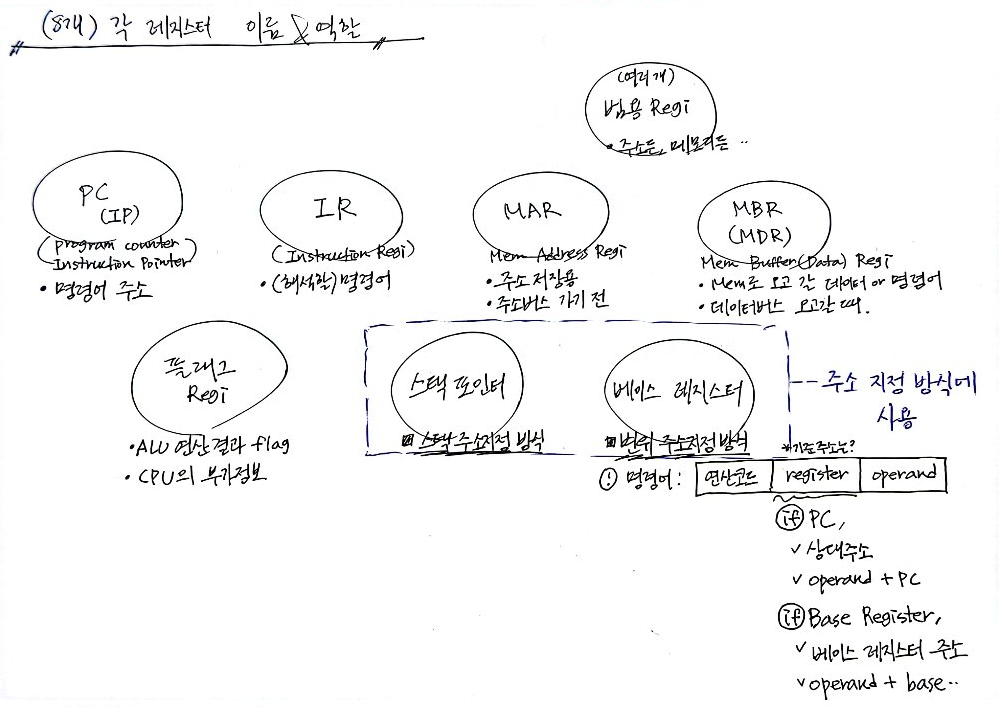 (8개) 각 레지스터 이름 & 역할
(여러개)
범용 Regi
• 주소든, 메모리든 ..
PC
(IP)
(program counter
Instruction Pointer)
• 명령어 주소
IR
(Instruction Regi)
• (해석할) 명령어
MAR
Mem Address Regi
• 주소 저장용
• 주소버스 가기 전
MBR
(MDR)
Mem Buffer(Data) Regi
• Mem로 오고 간 데이터 or 명령어
• 데이터버스 오고갈 때.
플래그
Regi
• ALU 연산결과 flag
• CPU의 부가정보
스택 포인터
스택 주소지정 방식
베이스 레지스터
변위 주소지정 방식
주소 지정 방식에
사용
*기준주소는?
! 명령어: 연산코드 register operand
if PC,
✓ 상대주소
✓ operand + PC
if Base Register,
✓ 베이스 레지스터 주소
✓ operand + base..